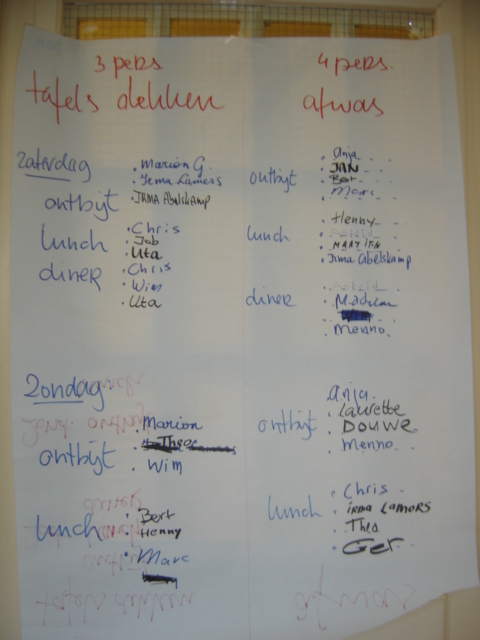 3 pers
tafels dekken
Zaterdag
ontbijt
. Marion G.
. Irma Lamers
. IRMA Abelskamp
lunch
. Chris
. Job
. Uta
diner
. Chris
. Wim
. Uta
Zondag
ontbijt
. Marion
Theo
. Wim
lunch
. Bert
. Henny
. Marc
4 pers.
afwas
ontbijt
. Anja
. JAN
. Bert
. Marc
lunch
. Henny
. MARTIEN
. Irma Abelskamp
diner
. Menno
ontbijt
. Anja
. Laurette
. DOUWE
. Menno
lunch
. Chris
. IRMA LAMERS
. Theo
. Ger